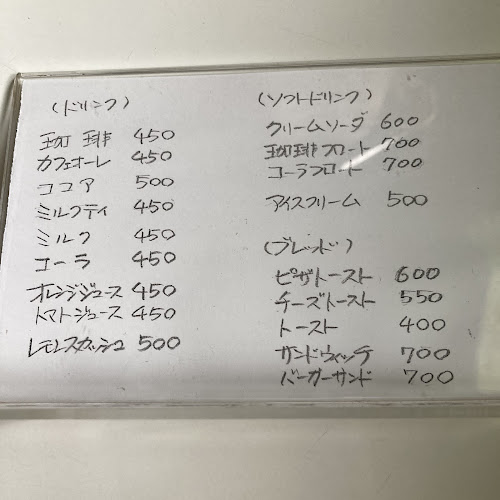 (ドリンク)
珈琲 450
カフェオーレ 450
ココア 500
ミルクティ 450
ミルク 450
コーラ 450
オレンジジュース 450
トマトジュース 450
レモンスカッシュ 500
(ソフトドリンク)
クリームソーダ 600
珈琲フロート 700
コーラフロート 700
アイスクリーム 500
(ブレッド)
ピザトースト 600
チーズトースト 550
トースト 400
サンドウィッチ 700
バーガーサンド 700